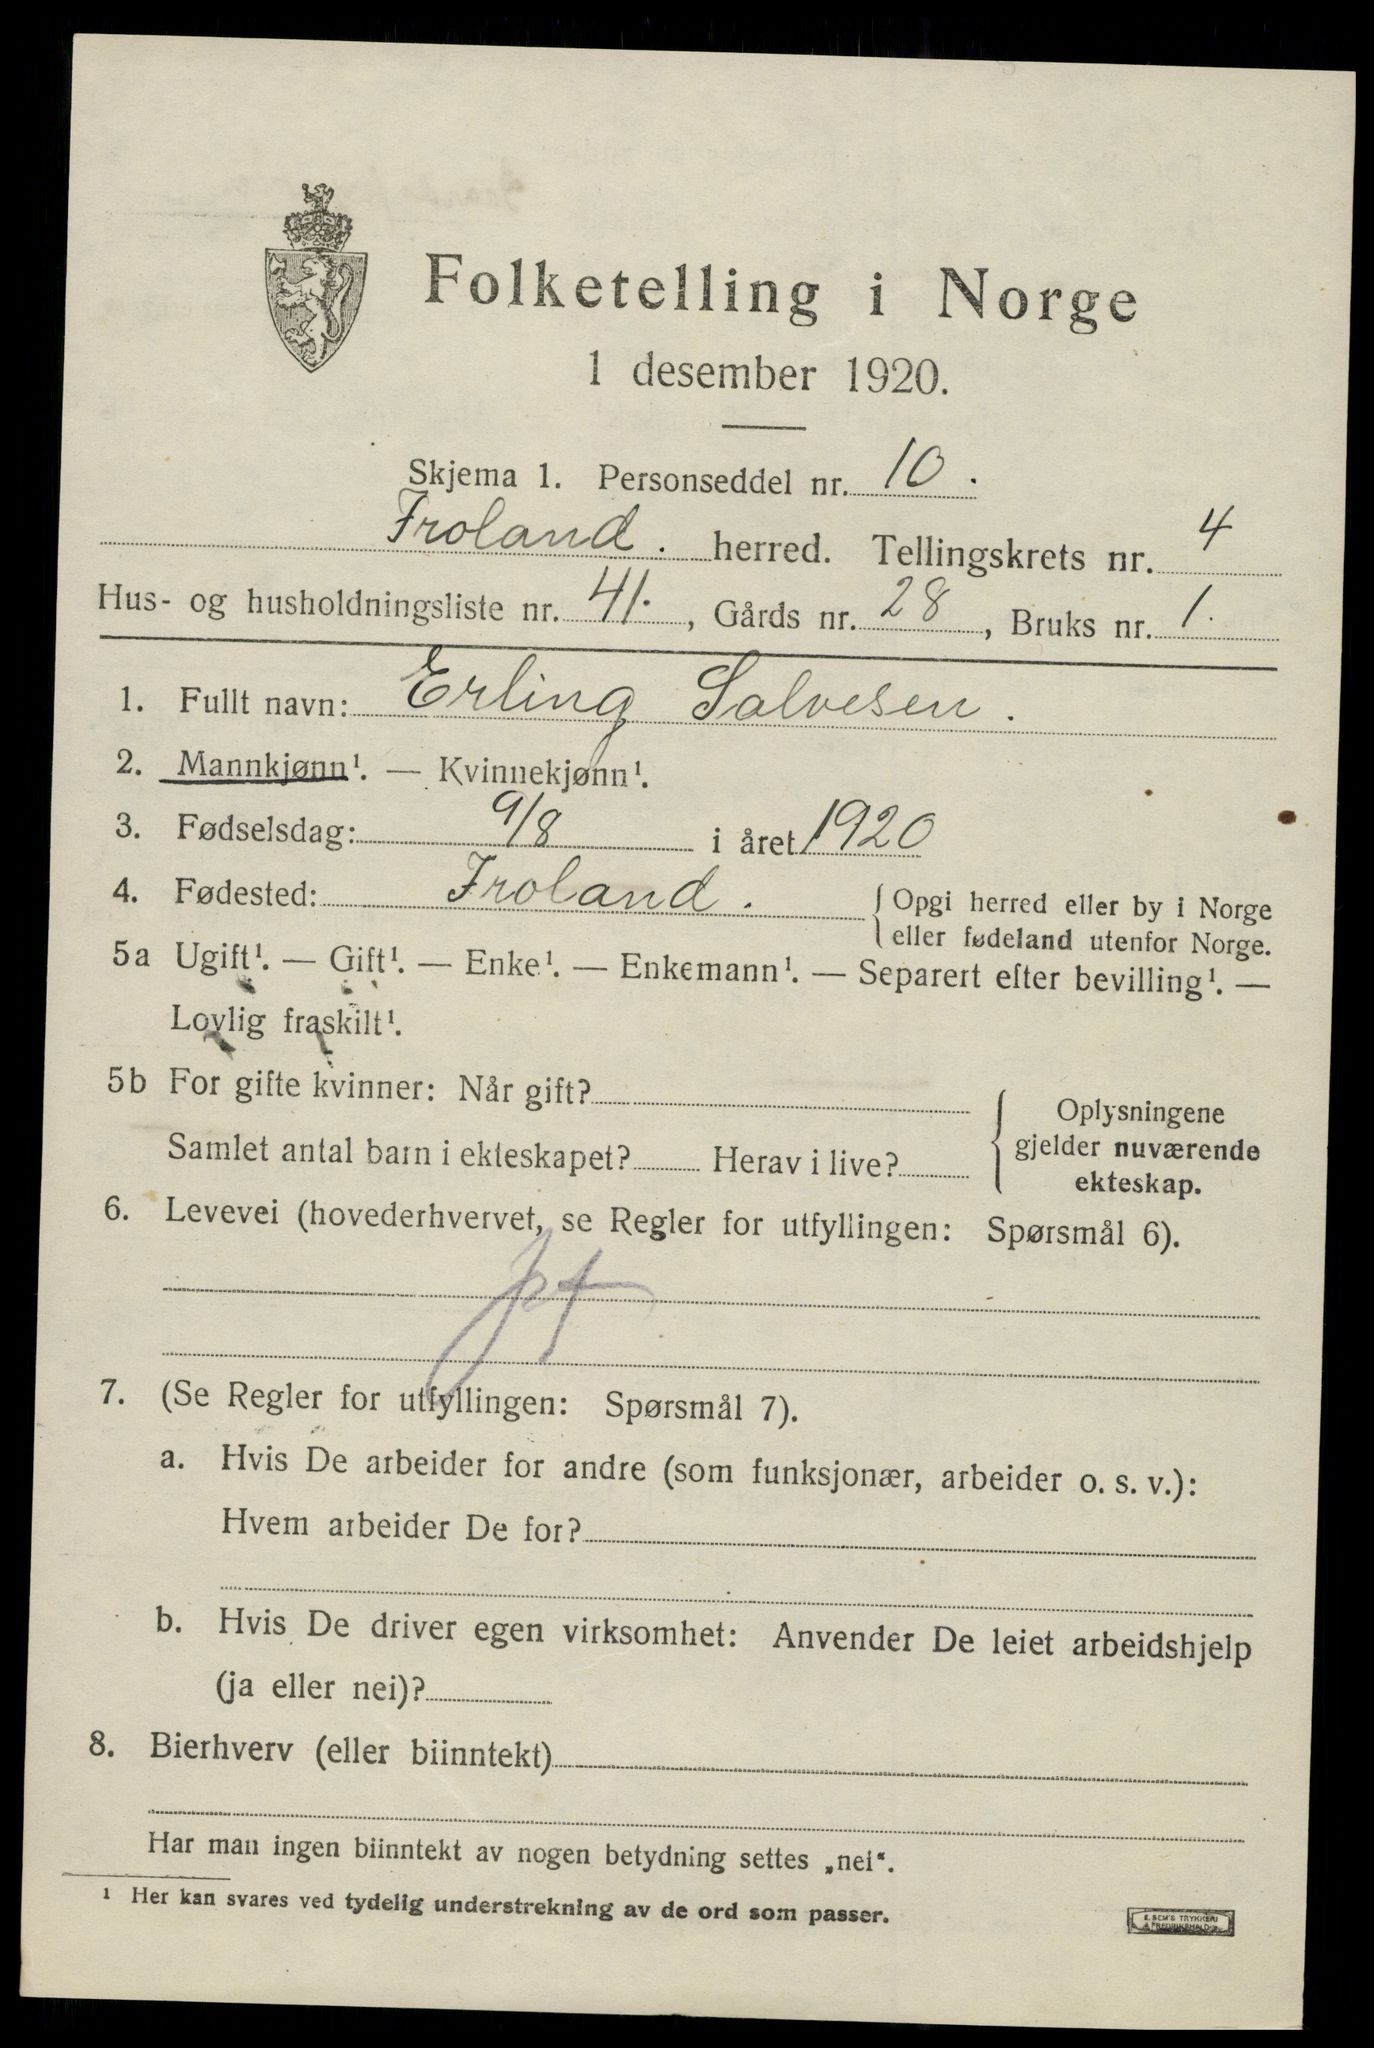 Folketelling i Norge
1 desember 1920.
Skjema 1. Personseddel nr. 10.
Froland. herred. Tellingskrets nr. 4
Hus- og husholdningsliste nr. 41., Gårds nr. 28, Bruks nr. 1.
1. Fullt navn: Erling Salvesen.
2. Mannkjønn¹. — Kvinnekjønn¹.
3. Fødselsdag: 9/8 i året 1920
4. Fødested: Froland. { Opgi herred eller by i Norge
eller fødeland utenfor Norge.
5a Ugift¹. — Gift¹. — Enke¹. — Enkemann¹. — Separert efter bevilling¹. —
Lovlig fraskilt¹.
5b For gifte kvinner: Når gift?
Samlet antal barn i ekteskapet? Herav i live?
{ Oplysningene
gjelder nuværende
ekteskap.
6. Levevei (hovederhvervet, se Regler for utfyllingen: Spørsmål 6).
7. (Se Regler for utfyllingen: Spørsmål 7).
a. Hvis De arbeider for andre (som funksjonær, arbeider o. s. v.):
Hvem arbeider De for?
b. Hvis De driver egen virksomhet: Anvender De leiet arbeidshjelp
(ja eller nei)?
8. Bierhverv (eller biinntekt)
Har man ingen biinntekt av nogen betydning settes „nei“.
¹ Her kan svares ved tydelig understrekning av de ord som passer.
E. SEM'S TRYKKERI
FREDRIKSHALD